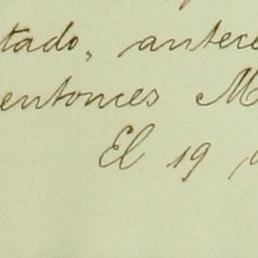 tado, antece
entonces M
El 19